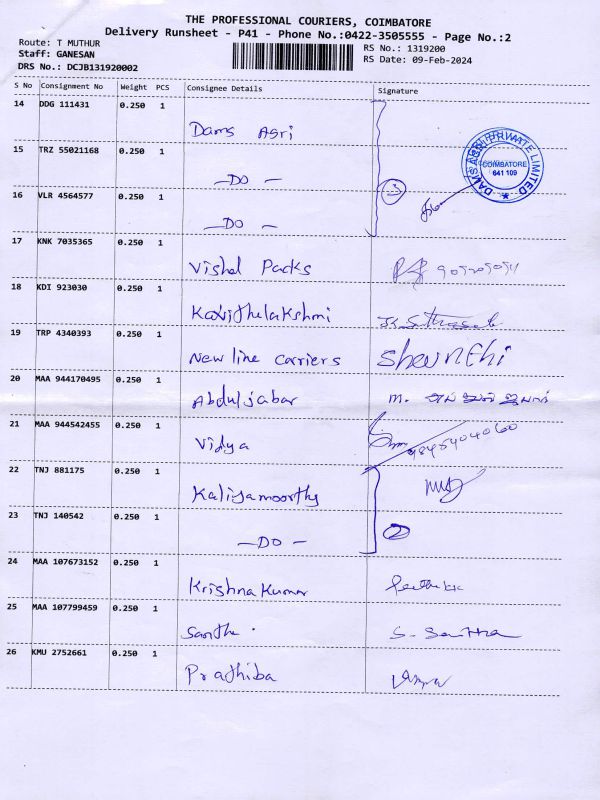 THE PROFESSIONAL COURIERS, COIMBATORE
Delivery Runsheet - P41 - Phone No.:0422-3505555 - Page No.:2
Route: T MUTHUR
RS No.: 1319200
Staff: GANESAN
RS Date: 09-Feb-2024
DRS No.: DCJB131920002
S No Consignment No Weight PCS Consignee Details Signature
14 DDG 111431 0.250 1
Dams Agri
15 TRZ 55021168 0.250 1
COIMBATORE
641 109
—DO— 3
16 VLR 4564577 0.250 1
—DO—
17 KNK 7035365 0.250 1
Vishal Packs
18 KDI 923030 0.250 1
Kavithelakshmi
19 TRP 4340393 0.250 1
New line carriers Shevnthi
20 MAA 944170495 0.250 1
Abduljabar m.
21 MAA 944542455 0.250 1
Vidya
22 TNJ 881175 0.250 1
Kaliyamoorthy
23 TNJ 140542 0.250 1
—DO— 2
24 MAA 107673152 0.250 1
Krishna Kumar
25 MAA 107799459 0.250 1
Santhi
26 KMU 2752661 0.250 1
Prathiba